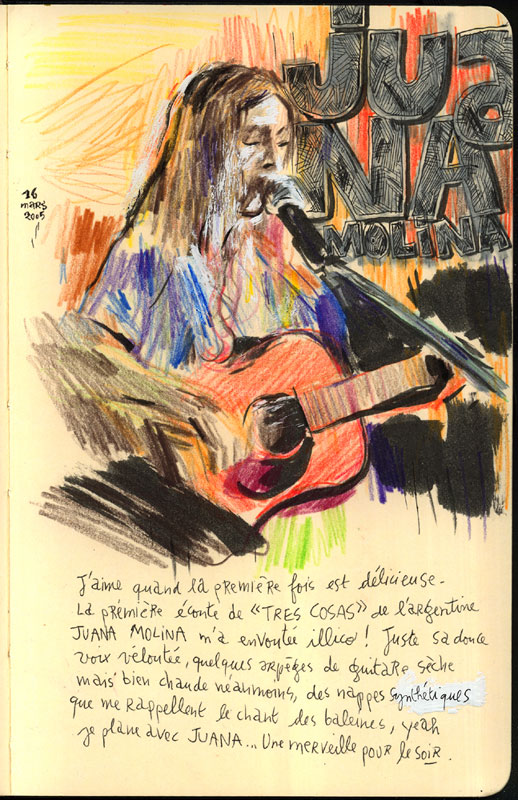 jua
NA
MOLINA
16
mars
2005
J'aime quand la première fois est délicieuse.
La prémière écoute de "TRES COSAS" de l'argentine
JUANA MOLINA m'a envoutée illico! Juste sa douce
voix véloutée, quelques arpèges de guitare sèche
mais bien chaude néanmoins, des nappes synthétiques
que me rappellent le chant des baleines, yeah
je plane avec JUANA... Une merveille pour le soir.